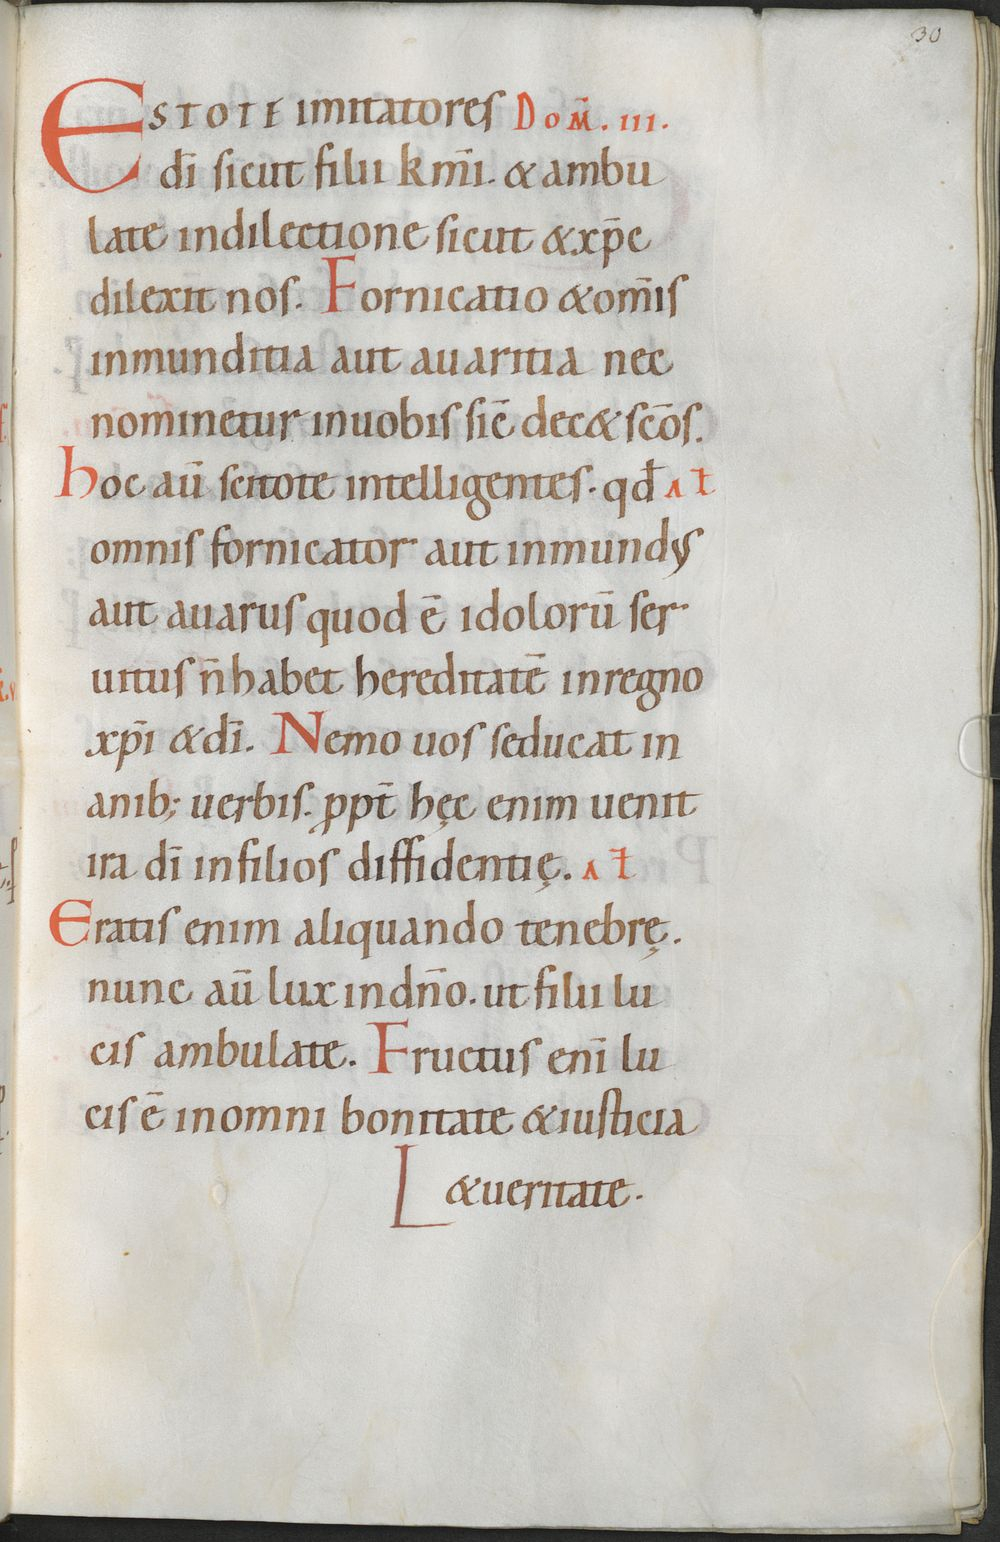 30
ESTOTE imitatores Dom̄. III.
dī sicut filii km̄i. & ambu
late indilectione sicut & xp̄c
dilexit nos. Fornicatio & om̄is
inmunditia aut auaritia nec
nominetur inuobis sic̄ dec& sc̄os.
hoc aū scitote intelligentes. qd̄ At̄
omnis fornicator aut inmundus
aut auarus quod ē idolorū ser
uitus n̄ habet hereditatē inregno
xp̄i & dī. Nemo uos seducat in
anib; uerbis. ꝓpt̄ hęc enim uenit
ira dī infilios diffidentię. At̄
Eratis enim aliquando tenebrę.
nunc aū lux indn̄o. ut filii lu
cis ambulate. Fructus enī lu
cis ē inomni bonitate & iusticia
& ueritate.